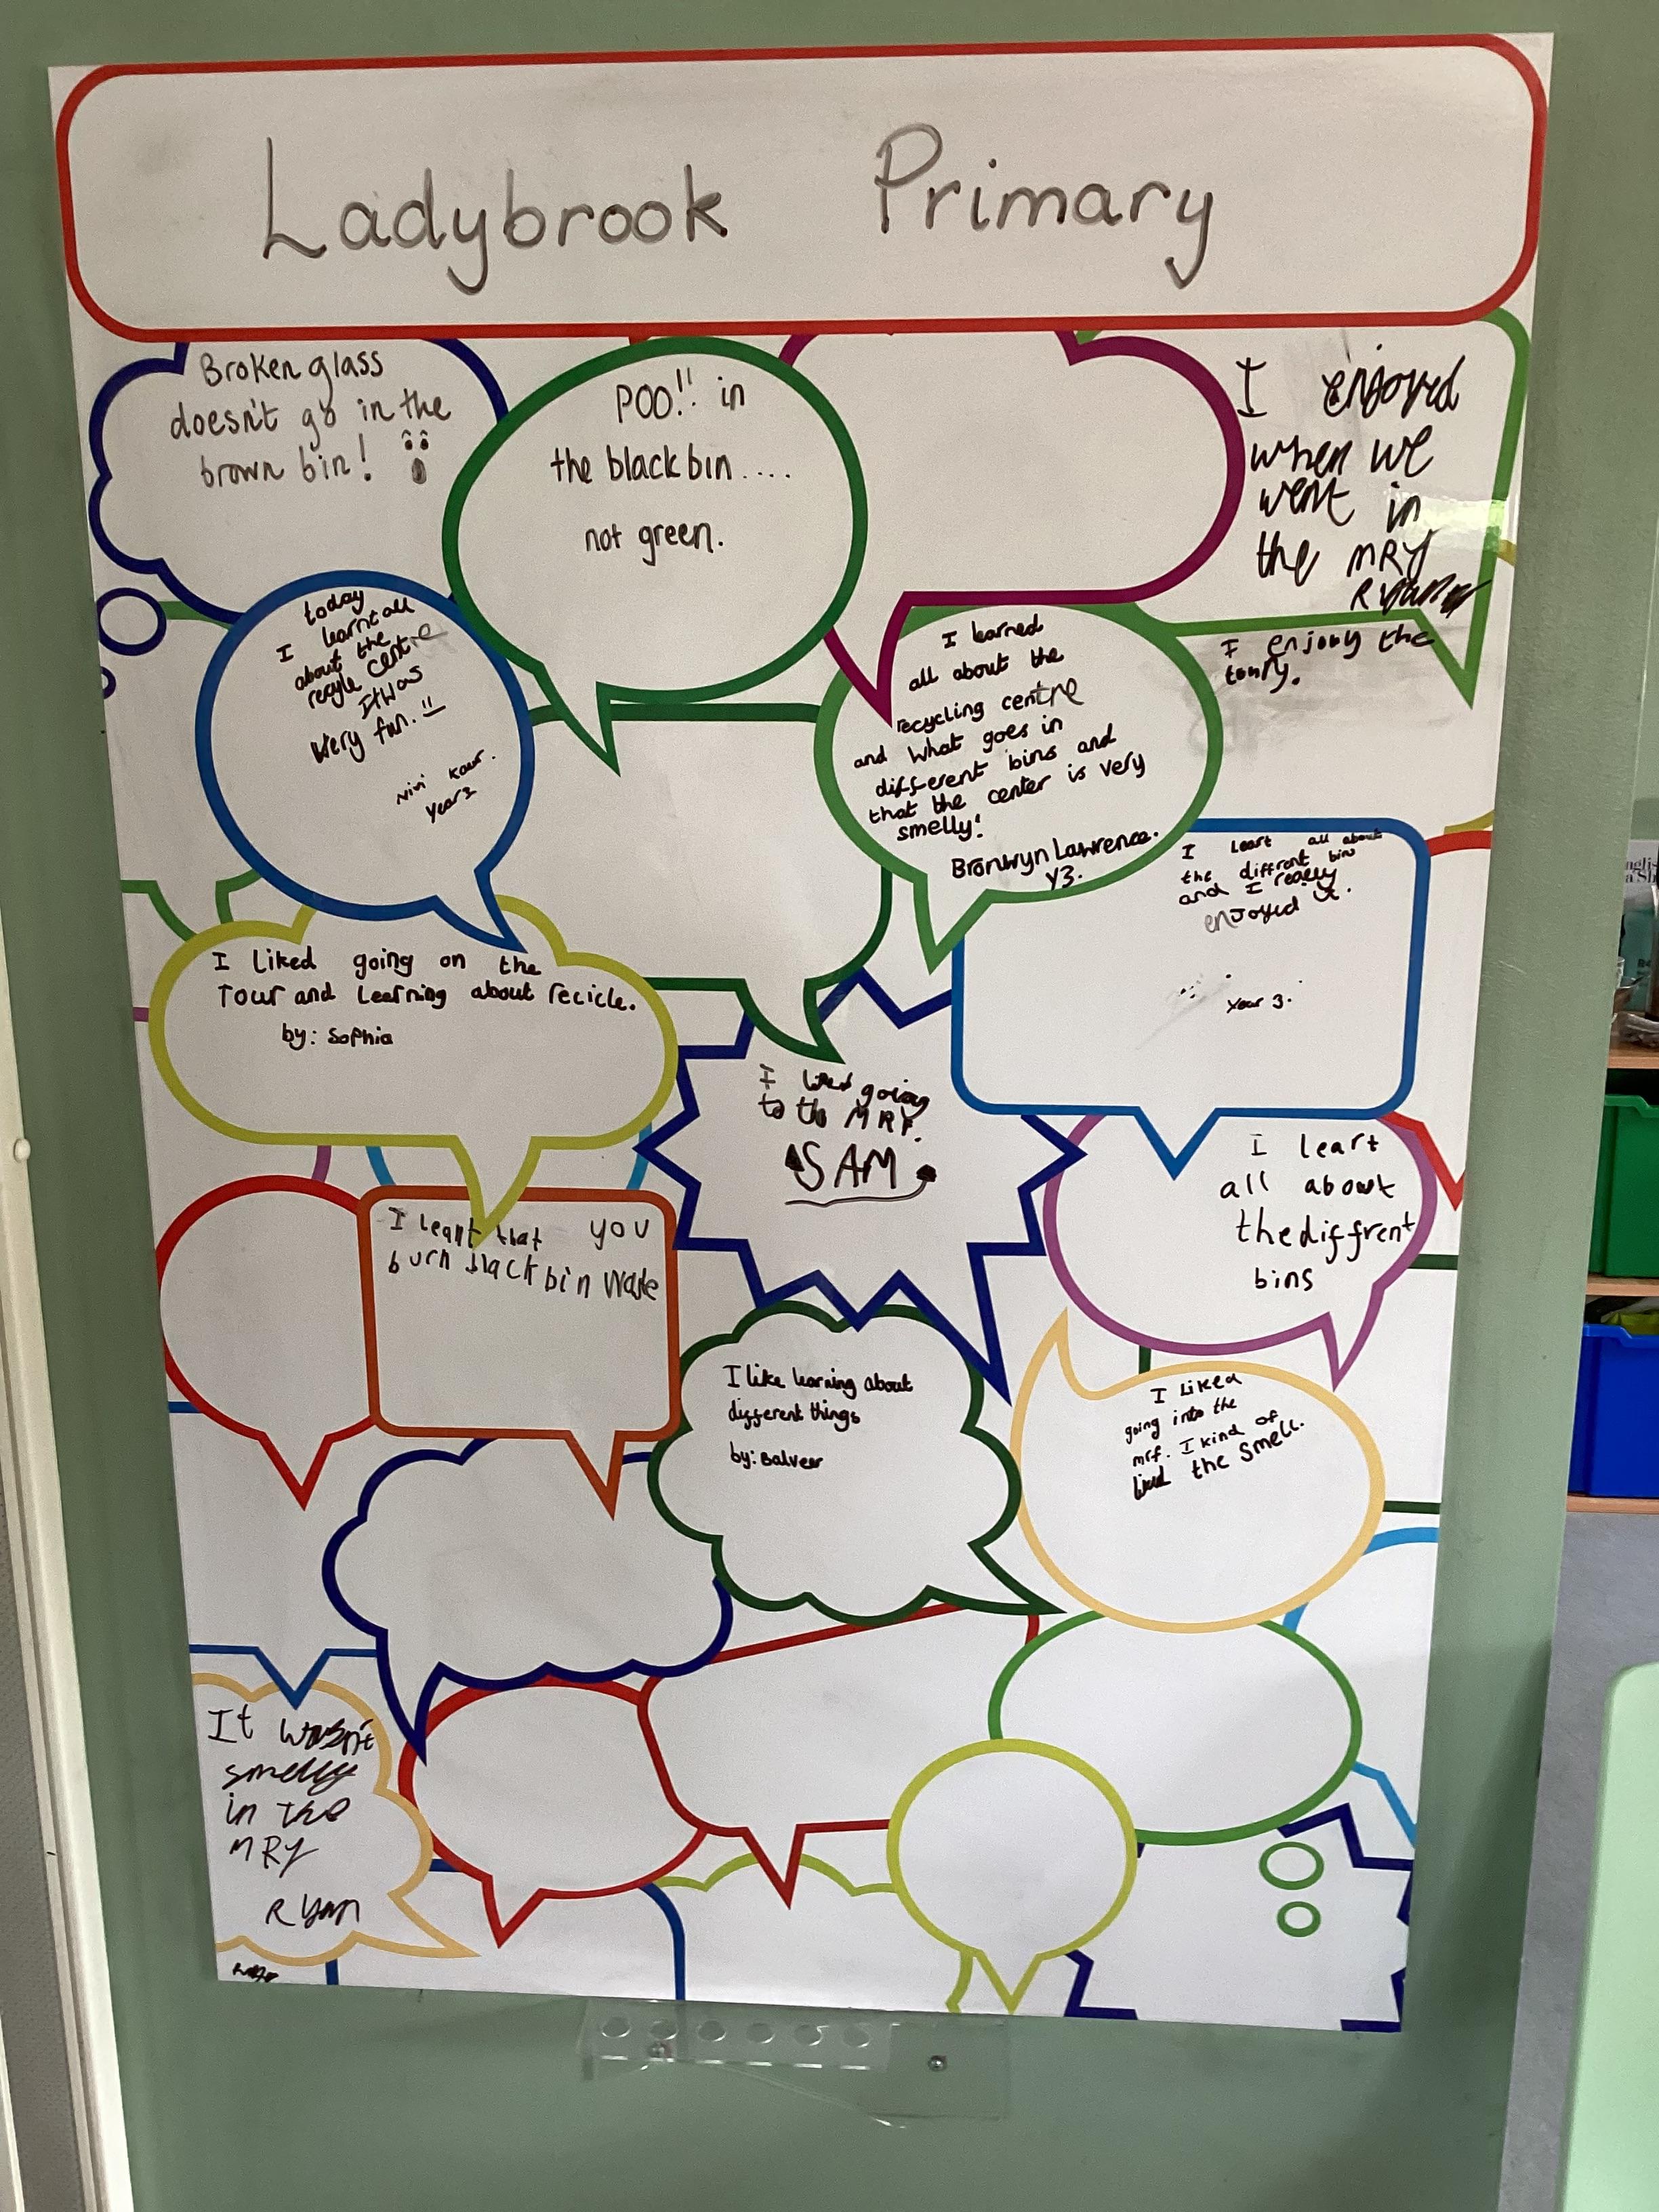 Ladybrook Primary
Broken glass
doesn't go in the
brown bin!
POO!! in
the black bin....
not green.
I enjoyed
when we
went in
the MRF
I enjouy the
tour.
today
I learnt all
about the
recycle centre
It was
very fun.
Nivi Kaur.
Year 3
I learned
all about the
recycling centre
and what goes in
different bins and
that the center is very
smelly!
Bronwyn Lawrence.
Y3.
I leart all about
the diffrent bin
and I really
enjoyed it.
Year 3.
I liked going on the
Tour and learning about recicle.
by: Sophia
I liked going
to the MRF.
SAM
I leart
all about
the diffrent
bins
I leant that you
burn black bin waste
I like learning about
different things
by: Balveer
I liked
going into the
mrf. I kind of
liked the smell.
It wasn't
smelly
in the
MRF
Ryan